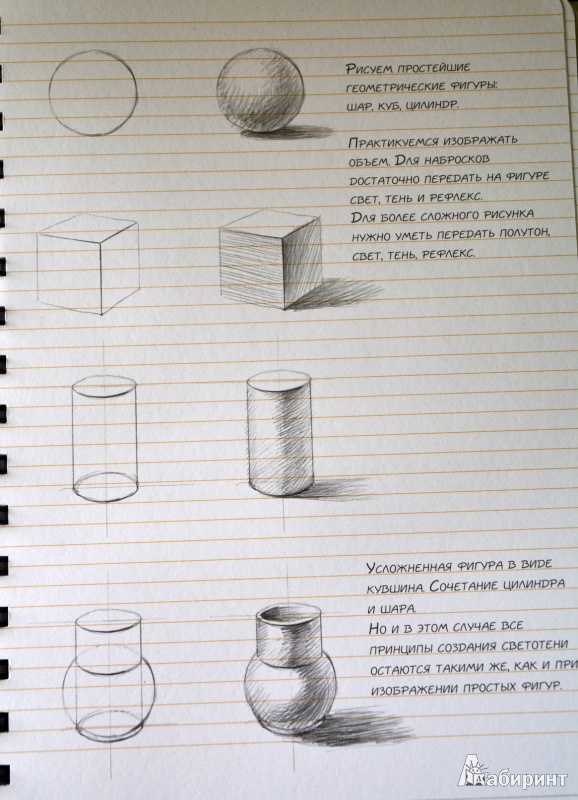 Рисуем простейшие
геометрические фигуры:
шар, куб, цилиндр.
Практикуемся изображать
объем. Для набросков
достаточно передать на фигуре
свет, тень и рефлекс.
Для более сложного рисунка
нужно уметь передать полутон,
свет, тень, рефлекс.
Усложненная фигура в виде
кувшина. Сочетание цилиндра
и шара.
Но и в этом случае все
принципы создания светотени
остаются такими же, как и при
изображении простых фигур.
Лабиринт